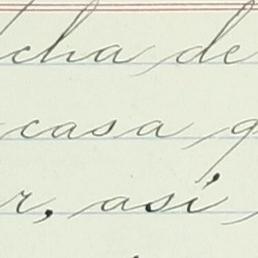 cha de
casa
r, así